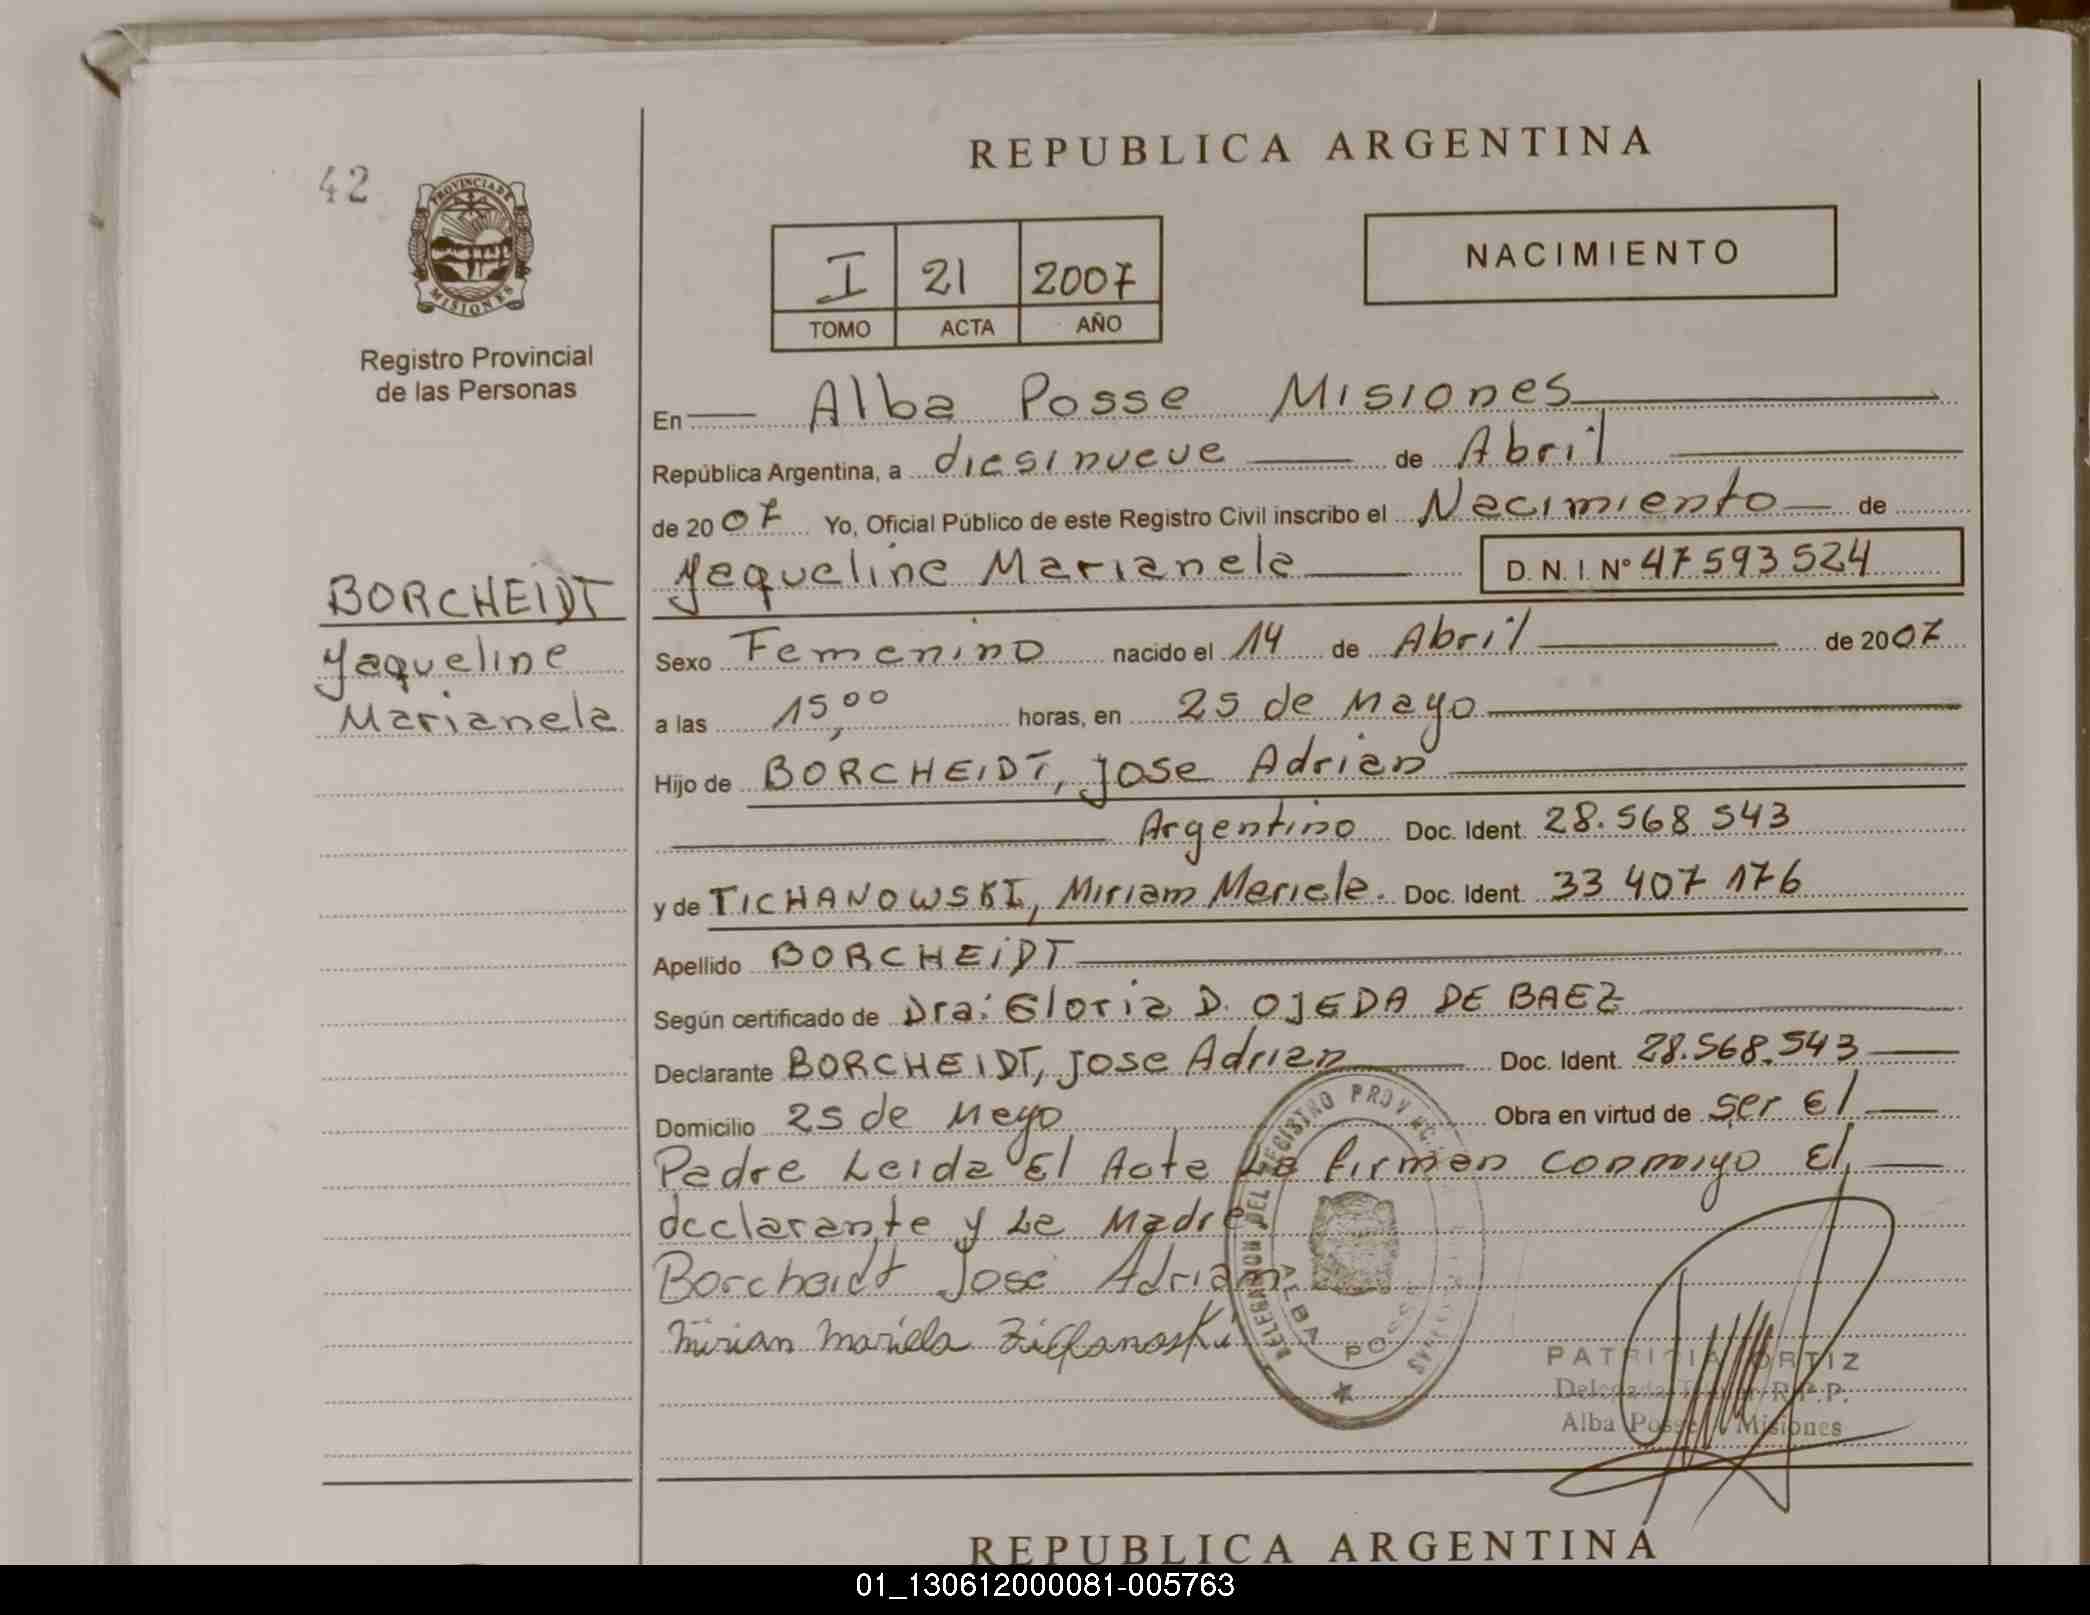 REPUBLICA ARGENTINA
42
PROVINCIA DE
MISIONES
Registro Provincial
de las Personas
I 21 2007
TOMO ACTA AÑO
NACIMIENTO
En Alba Posse Misiones
República Argentina, a diesinueve de Abril
de 2007 Yo, Oficial Público de este Registro Civil inscribo el Nacimiento de
Yaqueline Marianela D.N.I. N° 47593524
BORCHEIDT
Yaqueline
Marianela
Sexo Femenino nacido el 14 de Abril de 2007
a las 15,00 horas, en 25 de Mayo
Hijo de BORCHEIDT, Jose Adrian
Argentino Doc. Ident. 28.568 543
y de TICHANOWSKI, Miriam Mariela. Doc. Ident. 33 407 176
Apellido BORCHEIDT
Según certificado de Dra: Gloria D. OJEDA DE BAEZ
Declarante BORCHEIDT, Jose Adrian Doc. Ident. 28.568.543
Domicilio 25 de Mayo Obra en virtud de ser El
Padre Leida El Acta La firman conmigo El,
declarante y La Madre,
Borcheidt José Adrian
Mirian Mariela
DELEGACION DEL REGISTRO PROVINCIAL
ALBA POSSE
PATRICIA ORTIZ
Delegada Titular R.P.P.
Alba Posse Misiones
REPUBLICA ARGENTINA
01_130612000081-005763